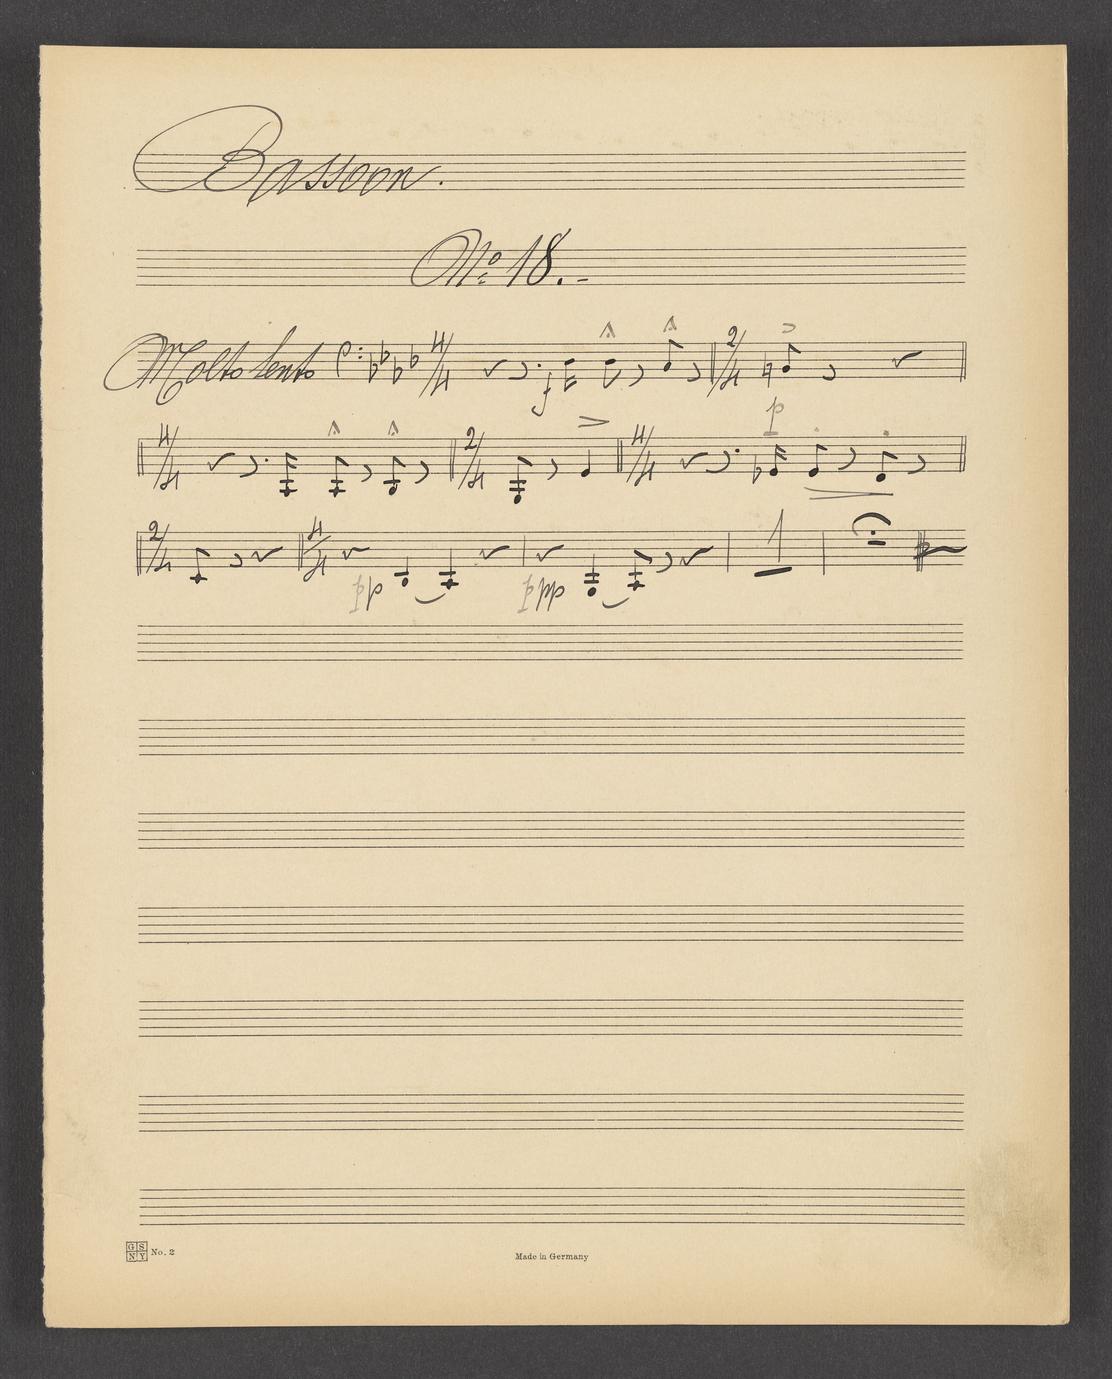 Bassoon.
No. 18.-
Molto lento 4/4 f 2/4 p
4/4 2/4 4/4
2/4 4/4 pp ppp 1
GSNY No. 2
Made in Germany